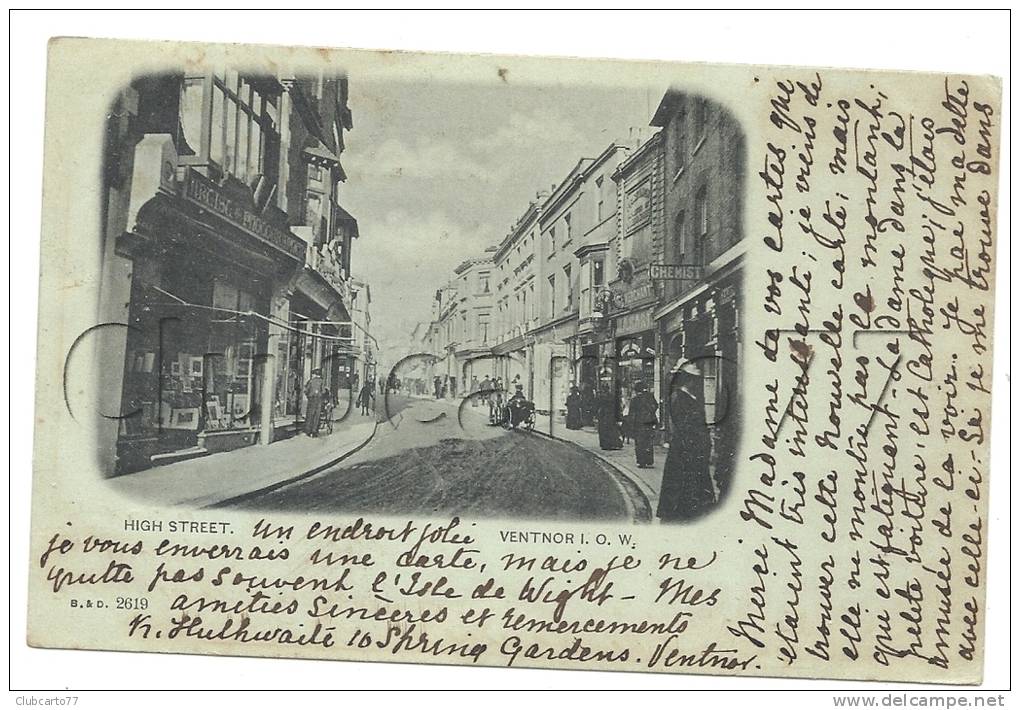 Merci Madame da vos cartes que
étaient très intéressants; je viens de
trouver cette nouvelle carte; mais
elle ne montre pas le montant;
qui est fatiguent. La dame dans la
petite voiture, est Catholique; j'étais
amusée de la voir. Je j'ai ma dette
avec celle-ci. Si je me trouve dans
CHEMIST
HIGH STREET.
VENTNOR I. O. W.
un endroit jolie
je vous enverrais une carte, mais je ne
quitte pas souvent l'Isle de Wight — Mes
B. & D. 2619
amitiés Sincères et remercements
K. Huthwaite 10 Spring Gardens. Ventnor.
Clubcarto77
http://www.delcampe.net